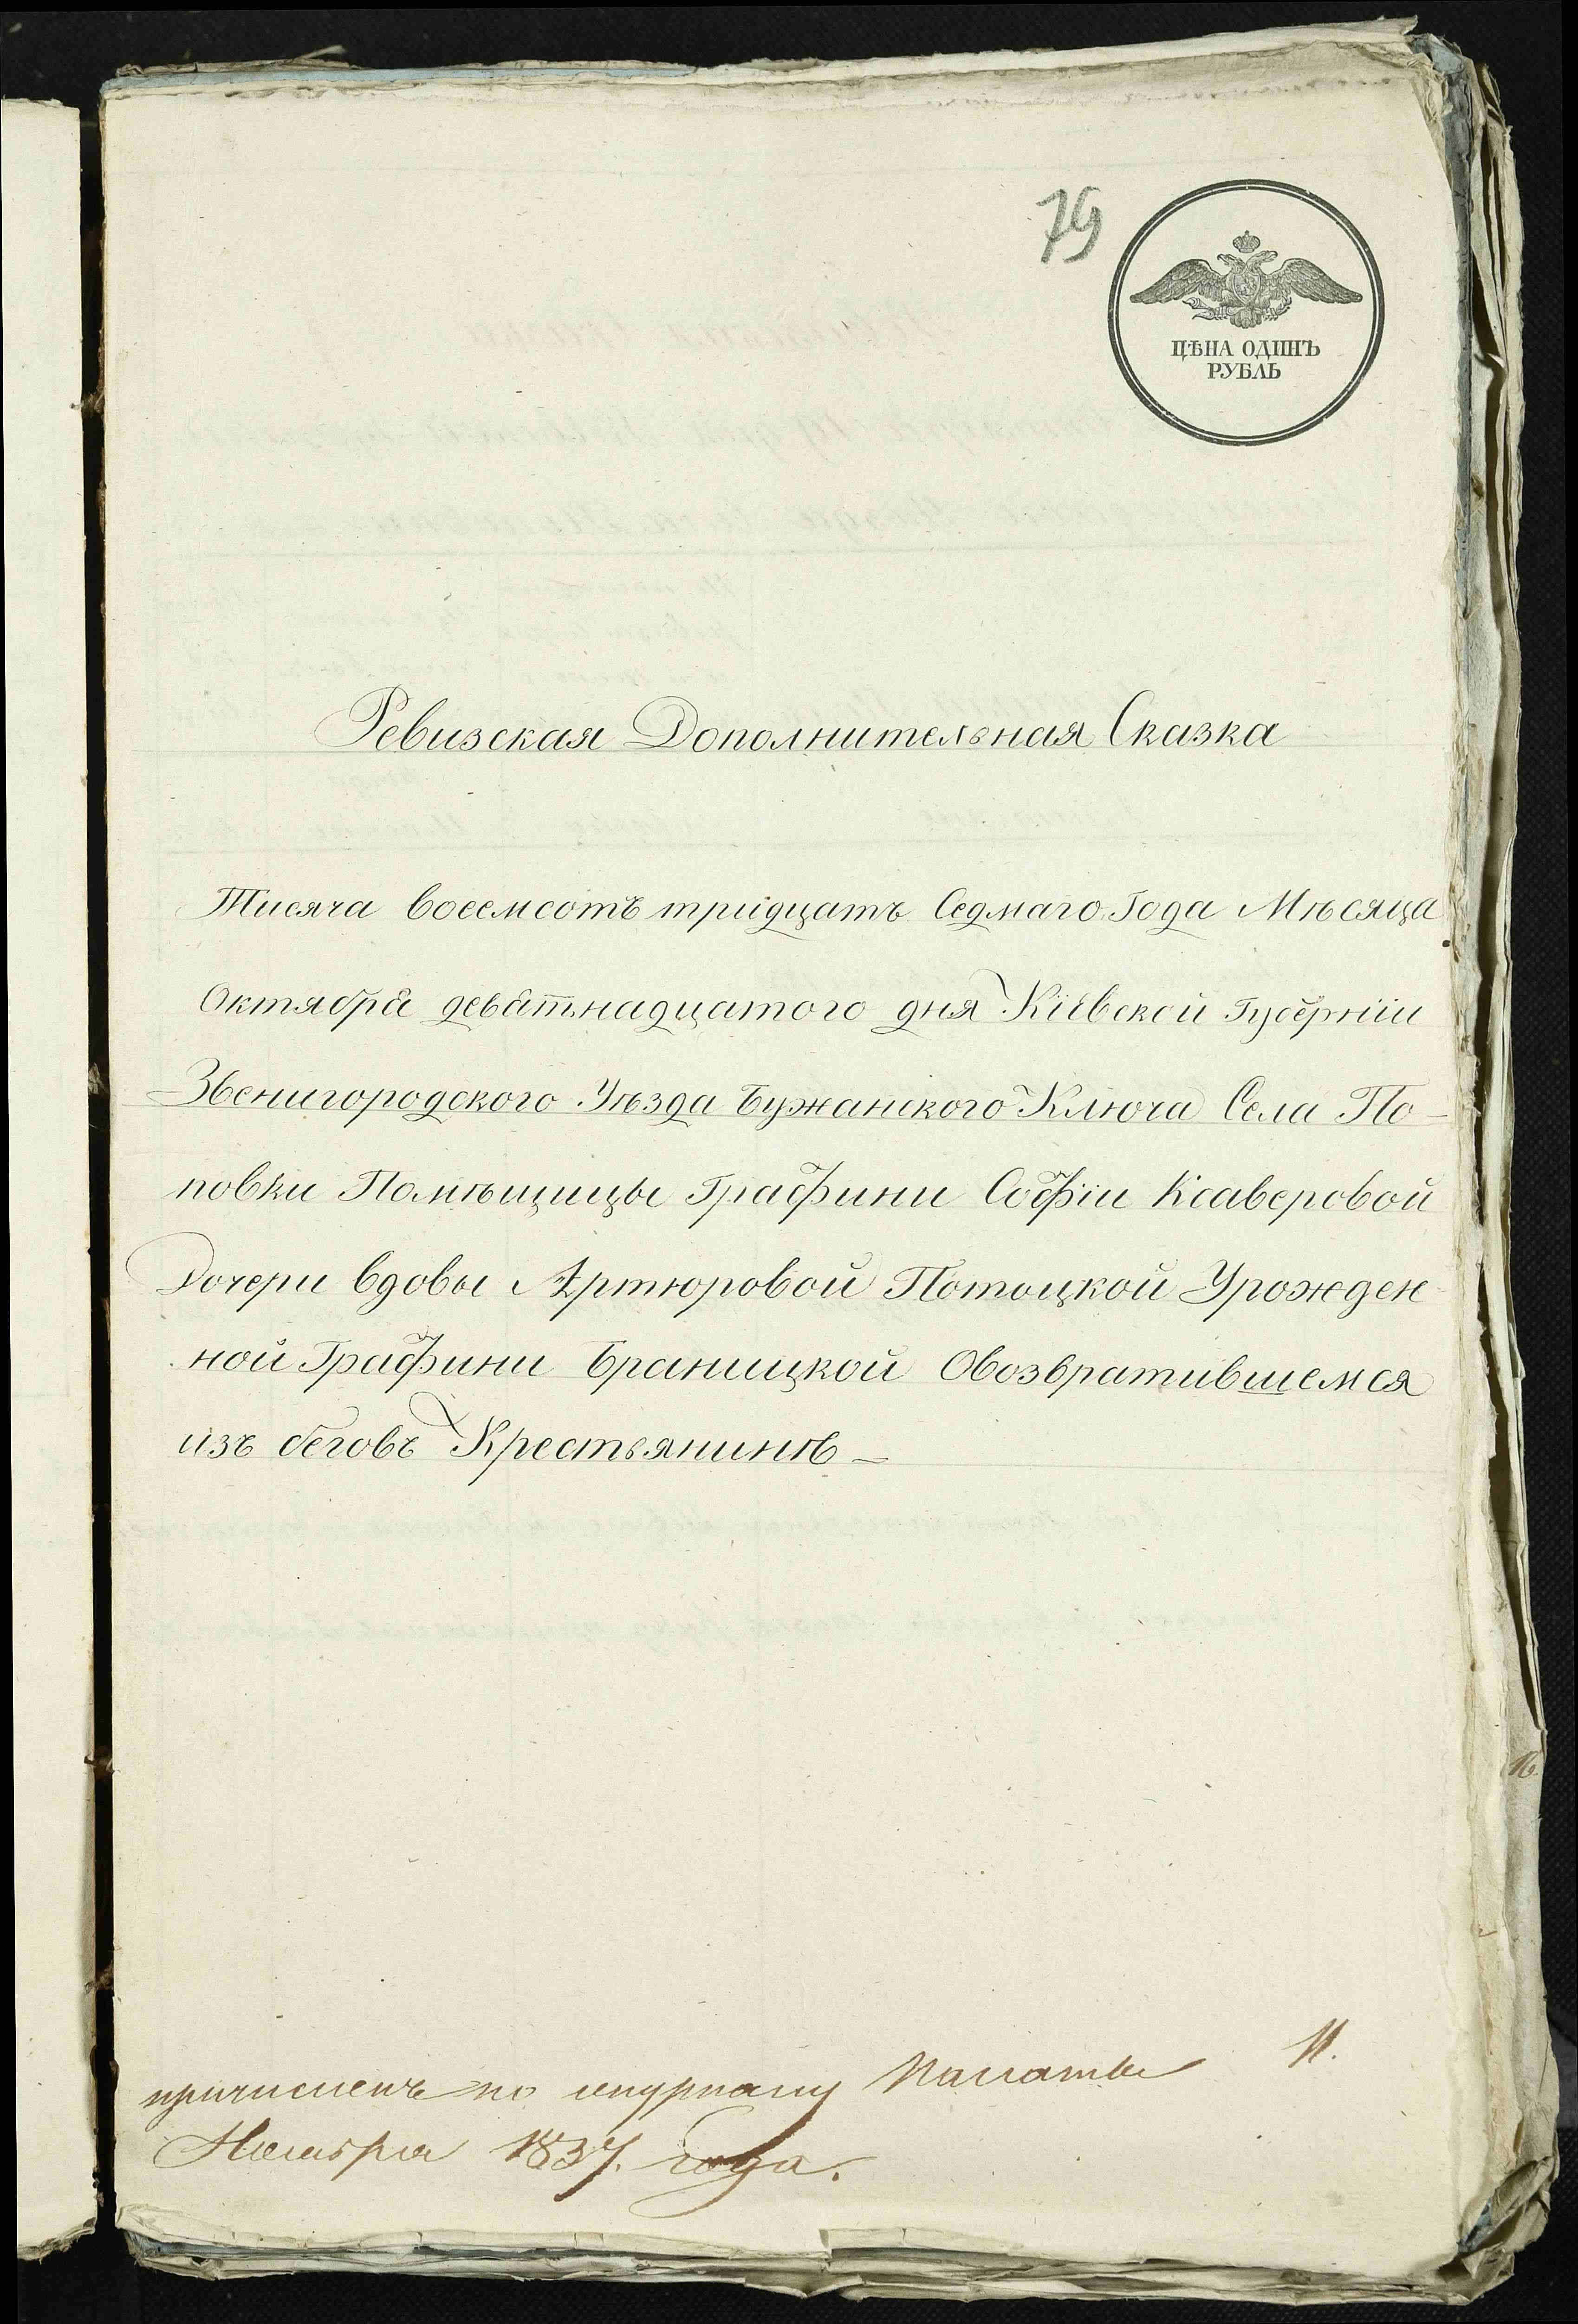 79
ЦѢНА ОДИНЪ
РУБЛЬ
Ревизская Дополнительная Сказка
Тисяча восемсотъ тридцать Седмаго Года Мѣсяца
Октября девятнадцатого дня Кіевской Губерніи
Звенигородского Уѣзда Бужанского Ключа Села По-
повки Помѣщицы Графини Софіи Ксаверовой
Дочери вдовы Артюровой Потоцкой Урожден
ной Графини Браницкой Овозвратившемся
изъ бѣговъ Крестьянинѣ –
причисленъ по журналу Палаты 11.
Ноября 1837. года.
16